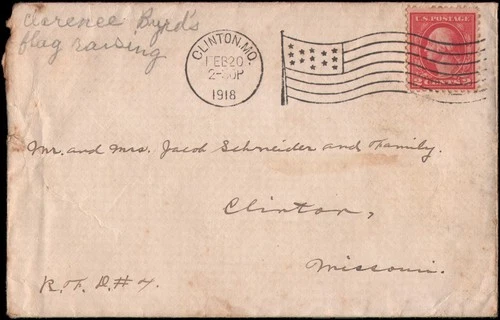 Clarence Byrd's
flag raising
CLINTON, MO.
FEB 20
2-30P
1918
U.S. POSTAGE
2 CENTS 2
Mr. and Mrs. Jacob Schneider and Family.
Clinton,
Missouri.
R. F. D. # 4.